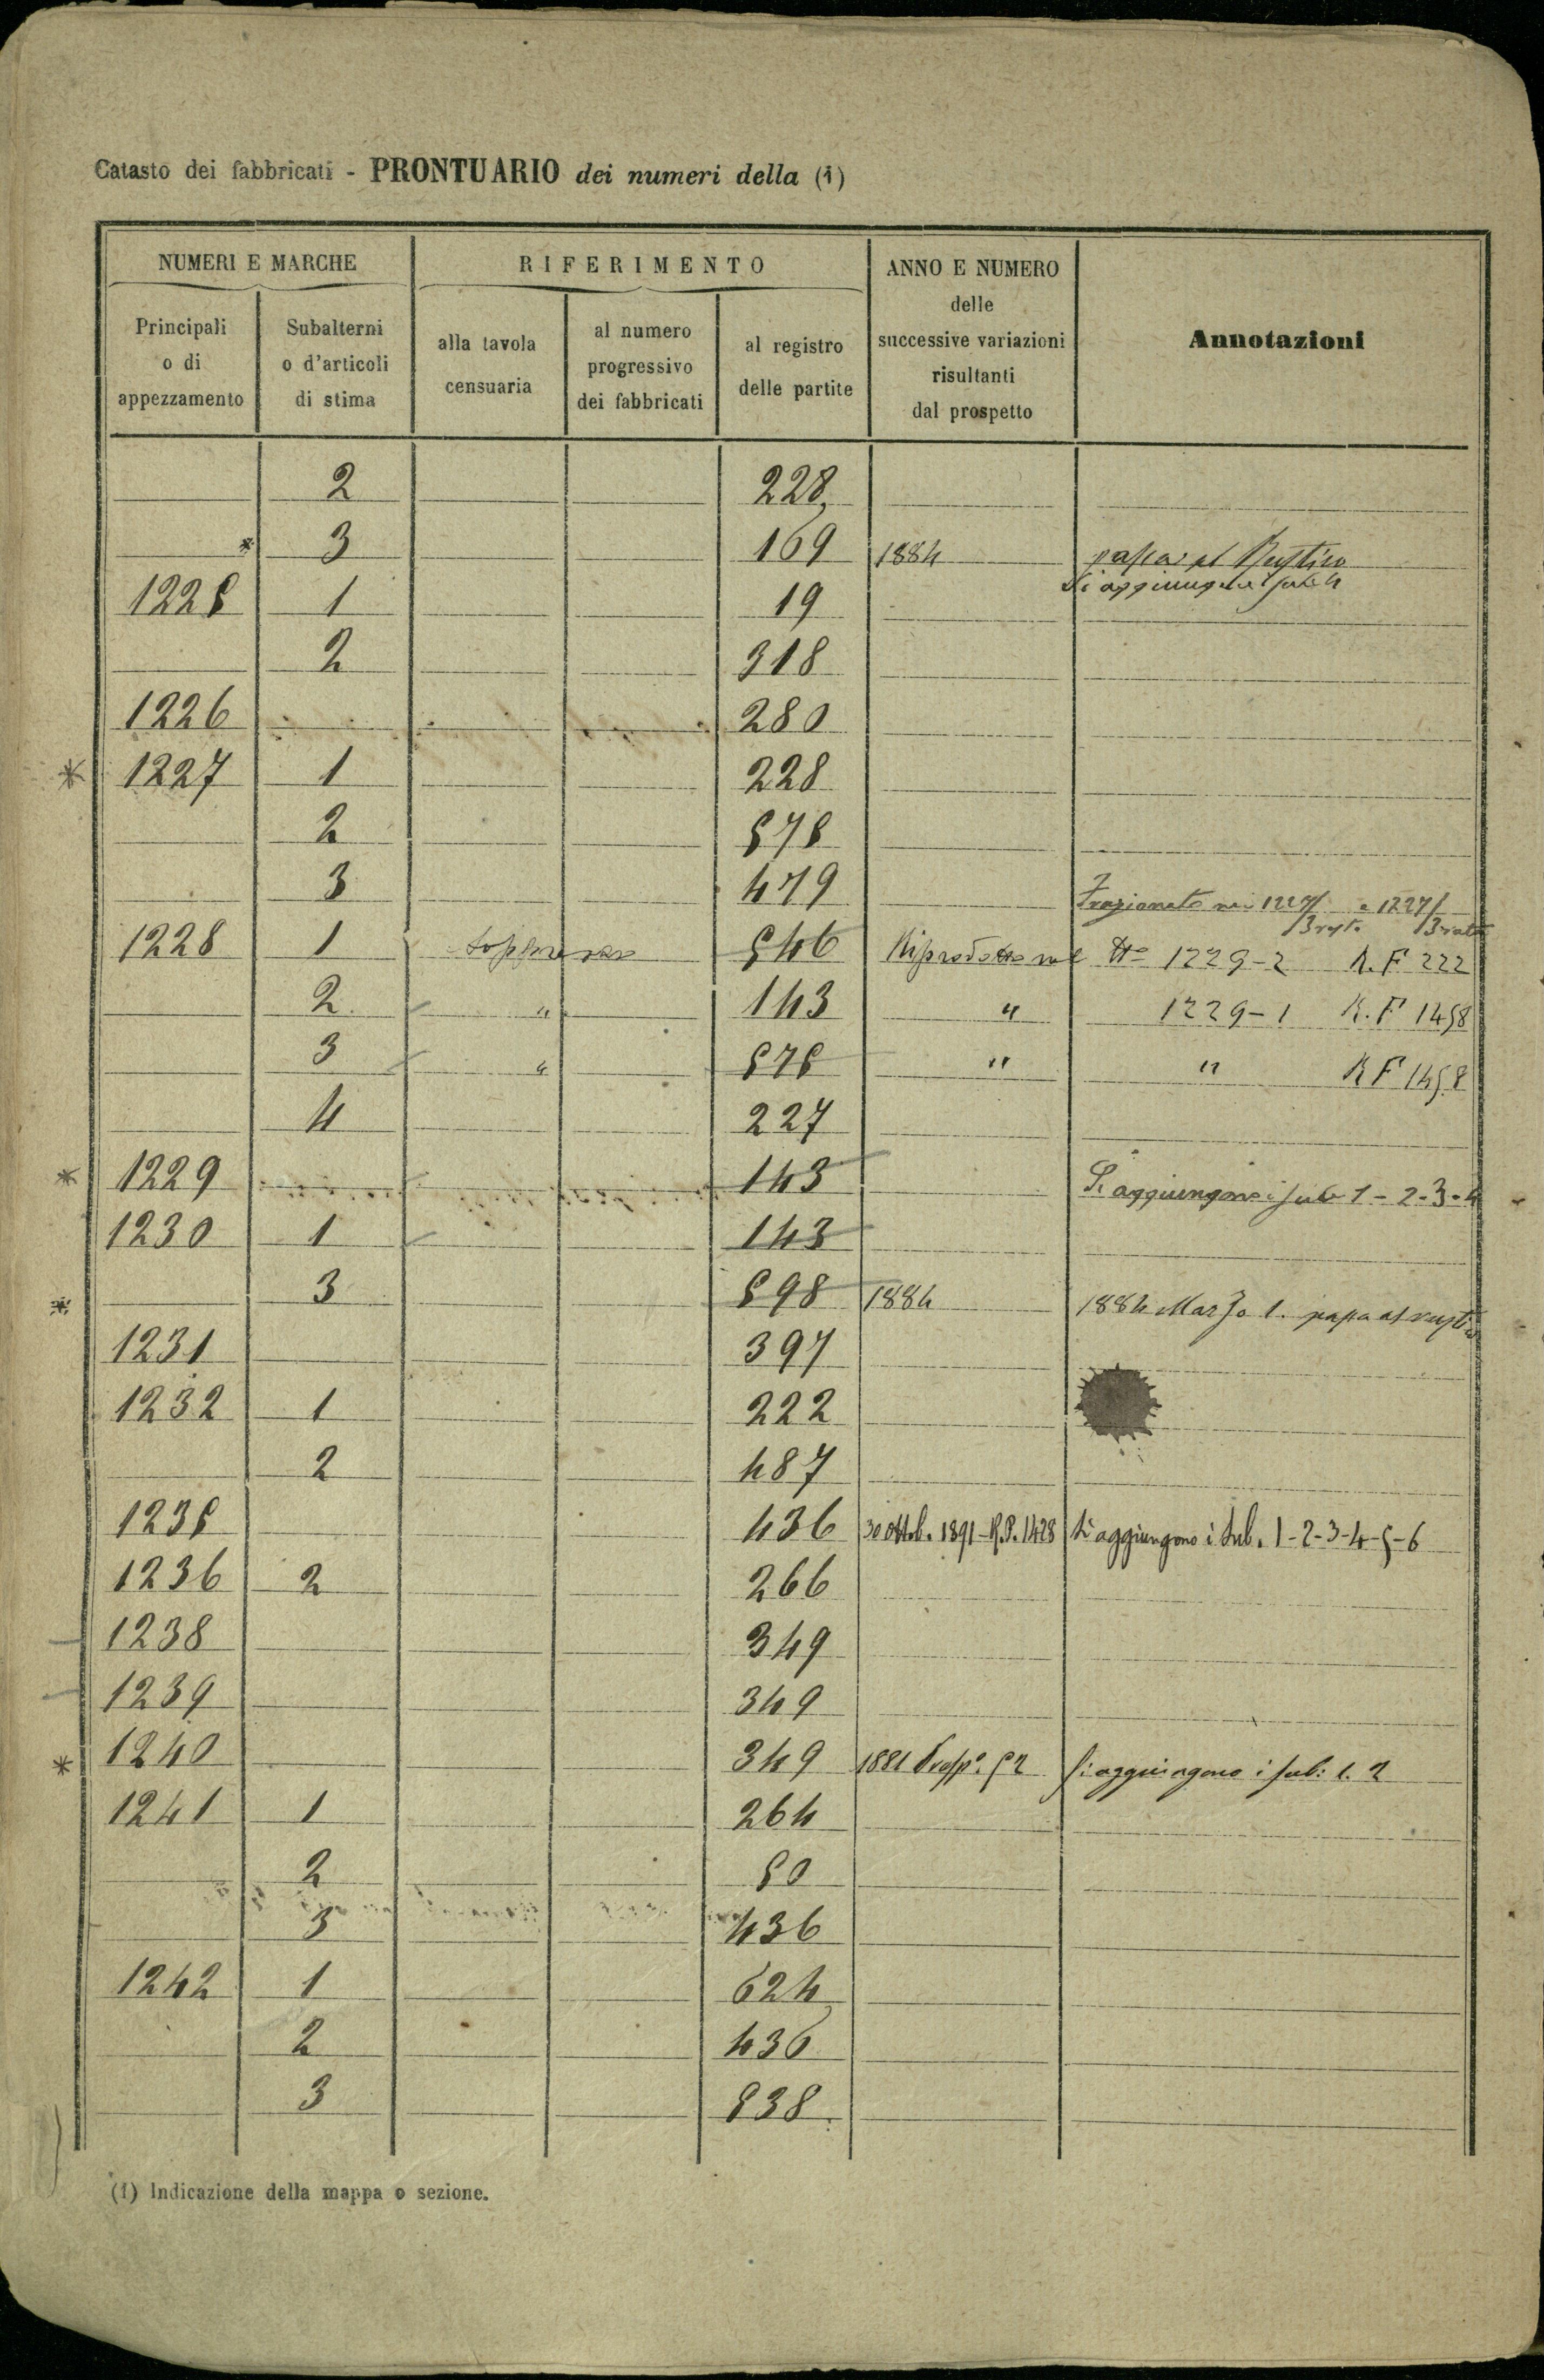 Catasto dei fabbricati - PRONTUARIO dei numeri della (1)
NUMERI E MARCHE RIFERIMENTO ANNO E NUMERO delle successive variazioni risultanti dal prospetto Annotazioni
Principali o di appezzamento Subalterni o d'articoli di stima alla tavola censuaria al numero progressivo dei fabbricati al registro delle partite
2 228
* 3 169 1884 passa al Rustico
Si aggiunge il sub 4
1225 1 19
2 318
1226 280
* 1227 1 228
2 575
3 479 Frazionato nei 1227/3 e 1227/3
1228 1 soppresso 546 Riprodotto nel N° 1229-2 R.F 222
2 " 143 " 1229-1 R.F 1458
3 " 575 " " R F 1458
4 227
* 1229 143 Si aggiungono i sub 1-2-3-4
1230 1 143
* 3 598 1884 1884 Marzo 1. passa al rustico
1231 397
1232 1 222
2 487
1235 436 30 ottob. 1891-R.P. 1428 Si aggiungono i Sub. 1-2-3-4-5-6
1236 2 266
1238 349
1239 349
* 1240 349 1881 Prosp° 52 Si aggiungono i sub: 1. 2
1241 1 264
2 50
3 436
1242 1 624
2 436
3 538
(1) Indicazione della mappa o sezione.